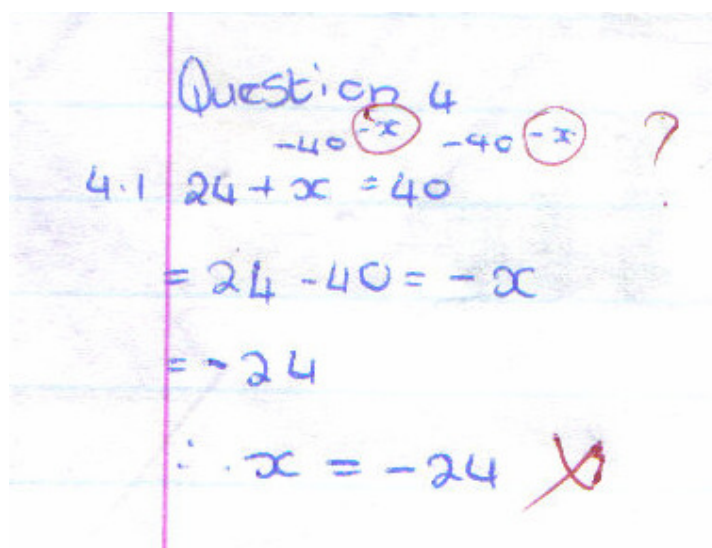 Question 4
-40 -x -40 -x ?
4.1 24 + x = 40
= 24 - 40 = - x
= - 24
∴ x = -24 X